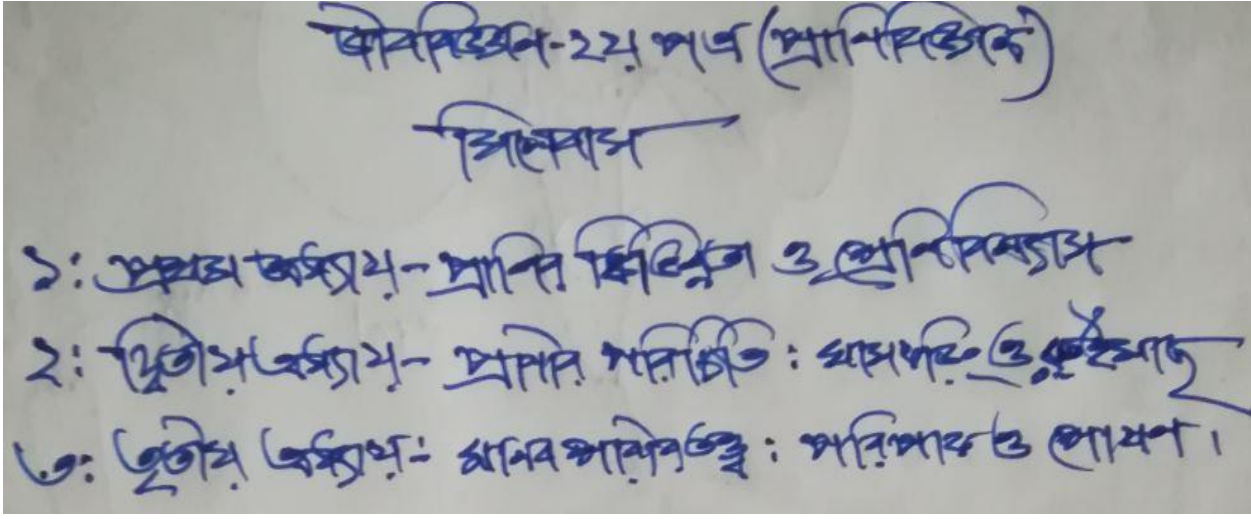 জীববিজ্ঞান-২য় পত্র (প্রাণিবিজ্ঞান)
সিলেবাস
১: প্রথম অধ্যায়- প্রাণির বিভিন্নতা ও শ্রেণিবিন্যাস
২: দ্বিতীয় অধ্যায়- প্রাণির পরিচিতি : ঘাসফড়িং ও রুইমাছ
৩: তৃতীয় অধ্যায়- মানব শারীরতত্ত্ব : পরিপাক ও শোষণ।